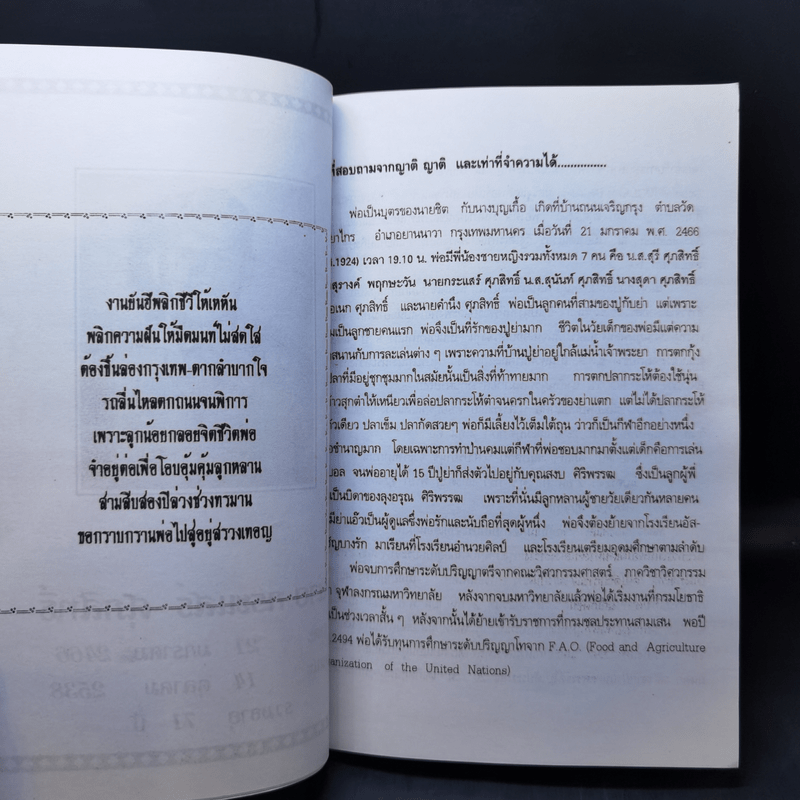 งานยันฮีพลิกชีวีให้เหหัน
พลิกความฝันให้มืดมนท์ไม่สดใส
ต้องขึ้นล่องกรุงเทพ-ตากลำบากใจ
รถลื่นไหลตกถนนจนพิการ
เพราะลูกน้อยกลอยจิตชีวิตพ่อ
จำอยู่ต่อเพื่อโอบอุ้มคุ้มลูกหลาน
สามสิบสองปีล่วงช่วงทรมาน
ขอกราบกรานพ่อไปสู่อยู่สรวงเทอญ
สอบถามจากญาติ ญาติ และเท่าที่จำความได้...............
พ่อเป็นบุตรของนายชิต กับนางบุญเกื้อ เกิดที่บ้านถนนเจริญกรุง ตำบลวัด
ยาไกร อำเภอยานนาวา กรุงเทพมหานคร เมื่อวันที่ 21 มกราคม พ.ศ. 2466
.1924) เวลา 19.10 น. พ่อมีพี่น้องชายหญิงรวมทั้งหมด 7 คน คือ น.ส.สุรี ศุภสิทธิ์
สุรางค์ พฤกษะวัน นายกระแสร์ ศุภสิทธิ์ น.ส.สุนันท์ ศุภสิทธิ์ นางสุดา ศุภสิทธิ์
อเนก ศุภสิทธิ์ และนายคำนึง ศุภสิทธิ์ พ่อเป็นลูกคนที่สามของปู่กับย่า แต่เพราะ
เป็นลูกชายคนแรก พ่อจึงเป็นที่รักของปู่ย่ามาก ชีวิตในวัยเด็กของพ่อมีแต่ความ
สนานกับการละเล่นต่าง ๆ เพราะความที่บ้านปู่ย่าอยู่ใกล้แม่น้ำเจ้าพระยา การตกกุ้ง
ปลาที่มีอยู่ชุกชุมมากในสมัยนั้นเป็นสิ่งที่ท้าทายมาก การตกปลากระโห้ต้องใช้นุ่น
าวสุกตำให้เหนียวเพื่อล่อปลากระโห้ตำจนครกในครัวของย่าแตก แต่ไม่ได้ปลากระโห้
ัวเดียว ปลาเข็ม ปลากัดสวยๆ พ่อก็มีเลี้ยงไว้เต็มใต้ถุน ว่าวก็เป็นกีฬาอีกอย่างหนึ่ง
อชำนาญมาก โดยเฉพาะการทำป่านคมแต่กีฬาที่พ่อชอบมากมาตั้งแต่เด็กคือการเล่น
บอล จนพ่ออายุได้ 15 ปีปู่ย่าก็ส่งตัวไปอยู่กับคุณสงบ ศิริพรรฒ ซึ่งเป็นลูกผู้พี่
เป็นบิดาของลุงอรุณ ศิริพรรฒ เพราะที่นั่นมีลูกหลานผู้ชายวัยเดียวกันหลายคน
มีย่าแอ๊วเป็นผู้ดูแลซึ่งพ่อรักและนับถือที่สุดผู้หนึ่ง พ่อจึงต้องย้ายจากโรงเรียนอัส-
ัญบางรัก มาเรียนที่โรงเรียนอำนวยศิลป์ และโรงเรียนเตรียมอุดมศึกษาตามลำดับ
พ่อจบการศึกษาระดับปริญญาตรีจากคณะวิศวกรรมศาสตร์ ภาควิชาวิศวกรรม
จุฬาลงกรณมหาวิทยาลัย หลังจากจบมหาวิทยาลัยแล้วพ่อได้เริ่มงานที่กรมโยธาธิ
เป็นช่วงเวลาสั้น ๆ หลังจากนั้นได้ย้ายเข้ารับราชการที่กรมชลประทานสามเสน พอปี
.2494 พ่อได้รับทุนการศึกษาระดับปริญญาโทจาก F.A.O. (Food and Agriculture
anization of the United Nations)